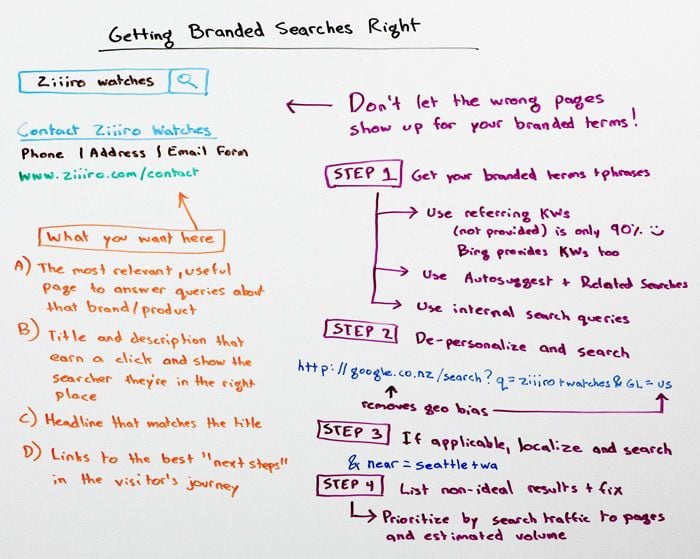 Getting Branded Searches Right
Ziiiro watches
Contact Ziiiro Watches
Phone | Address | Email Form
www.ziiiro.com/contact
What you want here
A) The most relevant, useful
page to answer queries about
that brand/product
B) Title and description that
earn a click and show the
searcher they're in the right
place
C) Headline that matches the title
D) Links to the best "next steps"
in the visitor's journey
Don't let the wrong pages
show up for your branded terms!
STEP 1 Get your branded terms + phrases
Use referring KWs
(not provided) is only 90%
Bing provides KWs too
Use Autosuggest + Related Searches
Use internal search queries
STEP 2 De-personalize and search
http://google.co.nz/search?q=ziiiro+watches&GL=US
removes geo bias
STEP 3 If applicable, localize and search
& near=seattle+wa
STEP 4 List non-ideal results + fix
Prioritize by search traffic to pages
and estimated volume